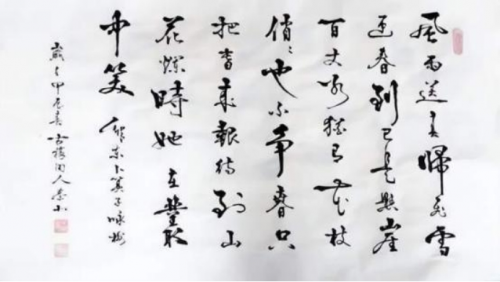 風雨送春歸飛雪
迎春到已是懸崖
百丈冰猶有花枝
俏俏也不爭春只
把春來報待到山
花爛時她在叢
中笑 東卜算子咏梅
甲辰春